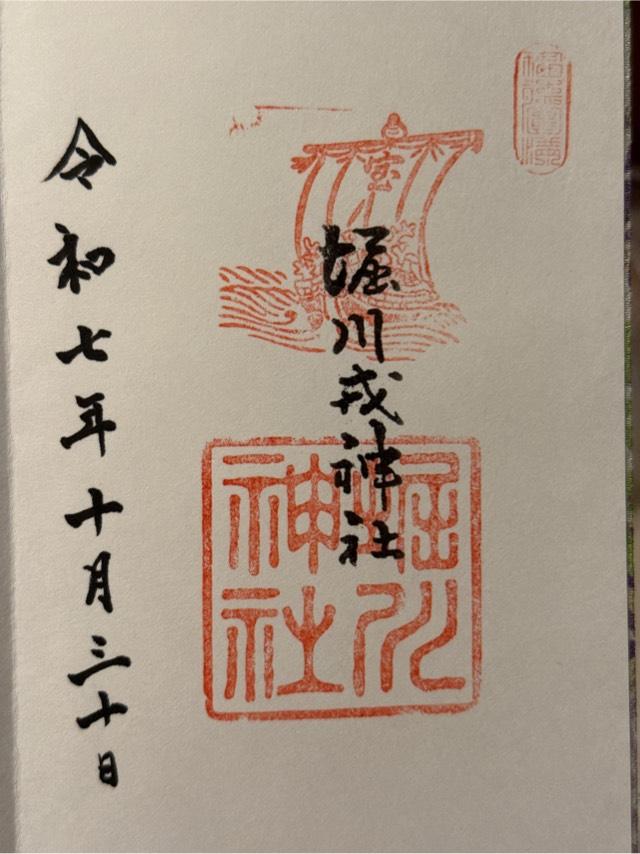 堀川戎神社
令和七年十月三十日
宝
堀川
神社